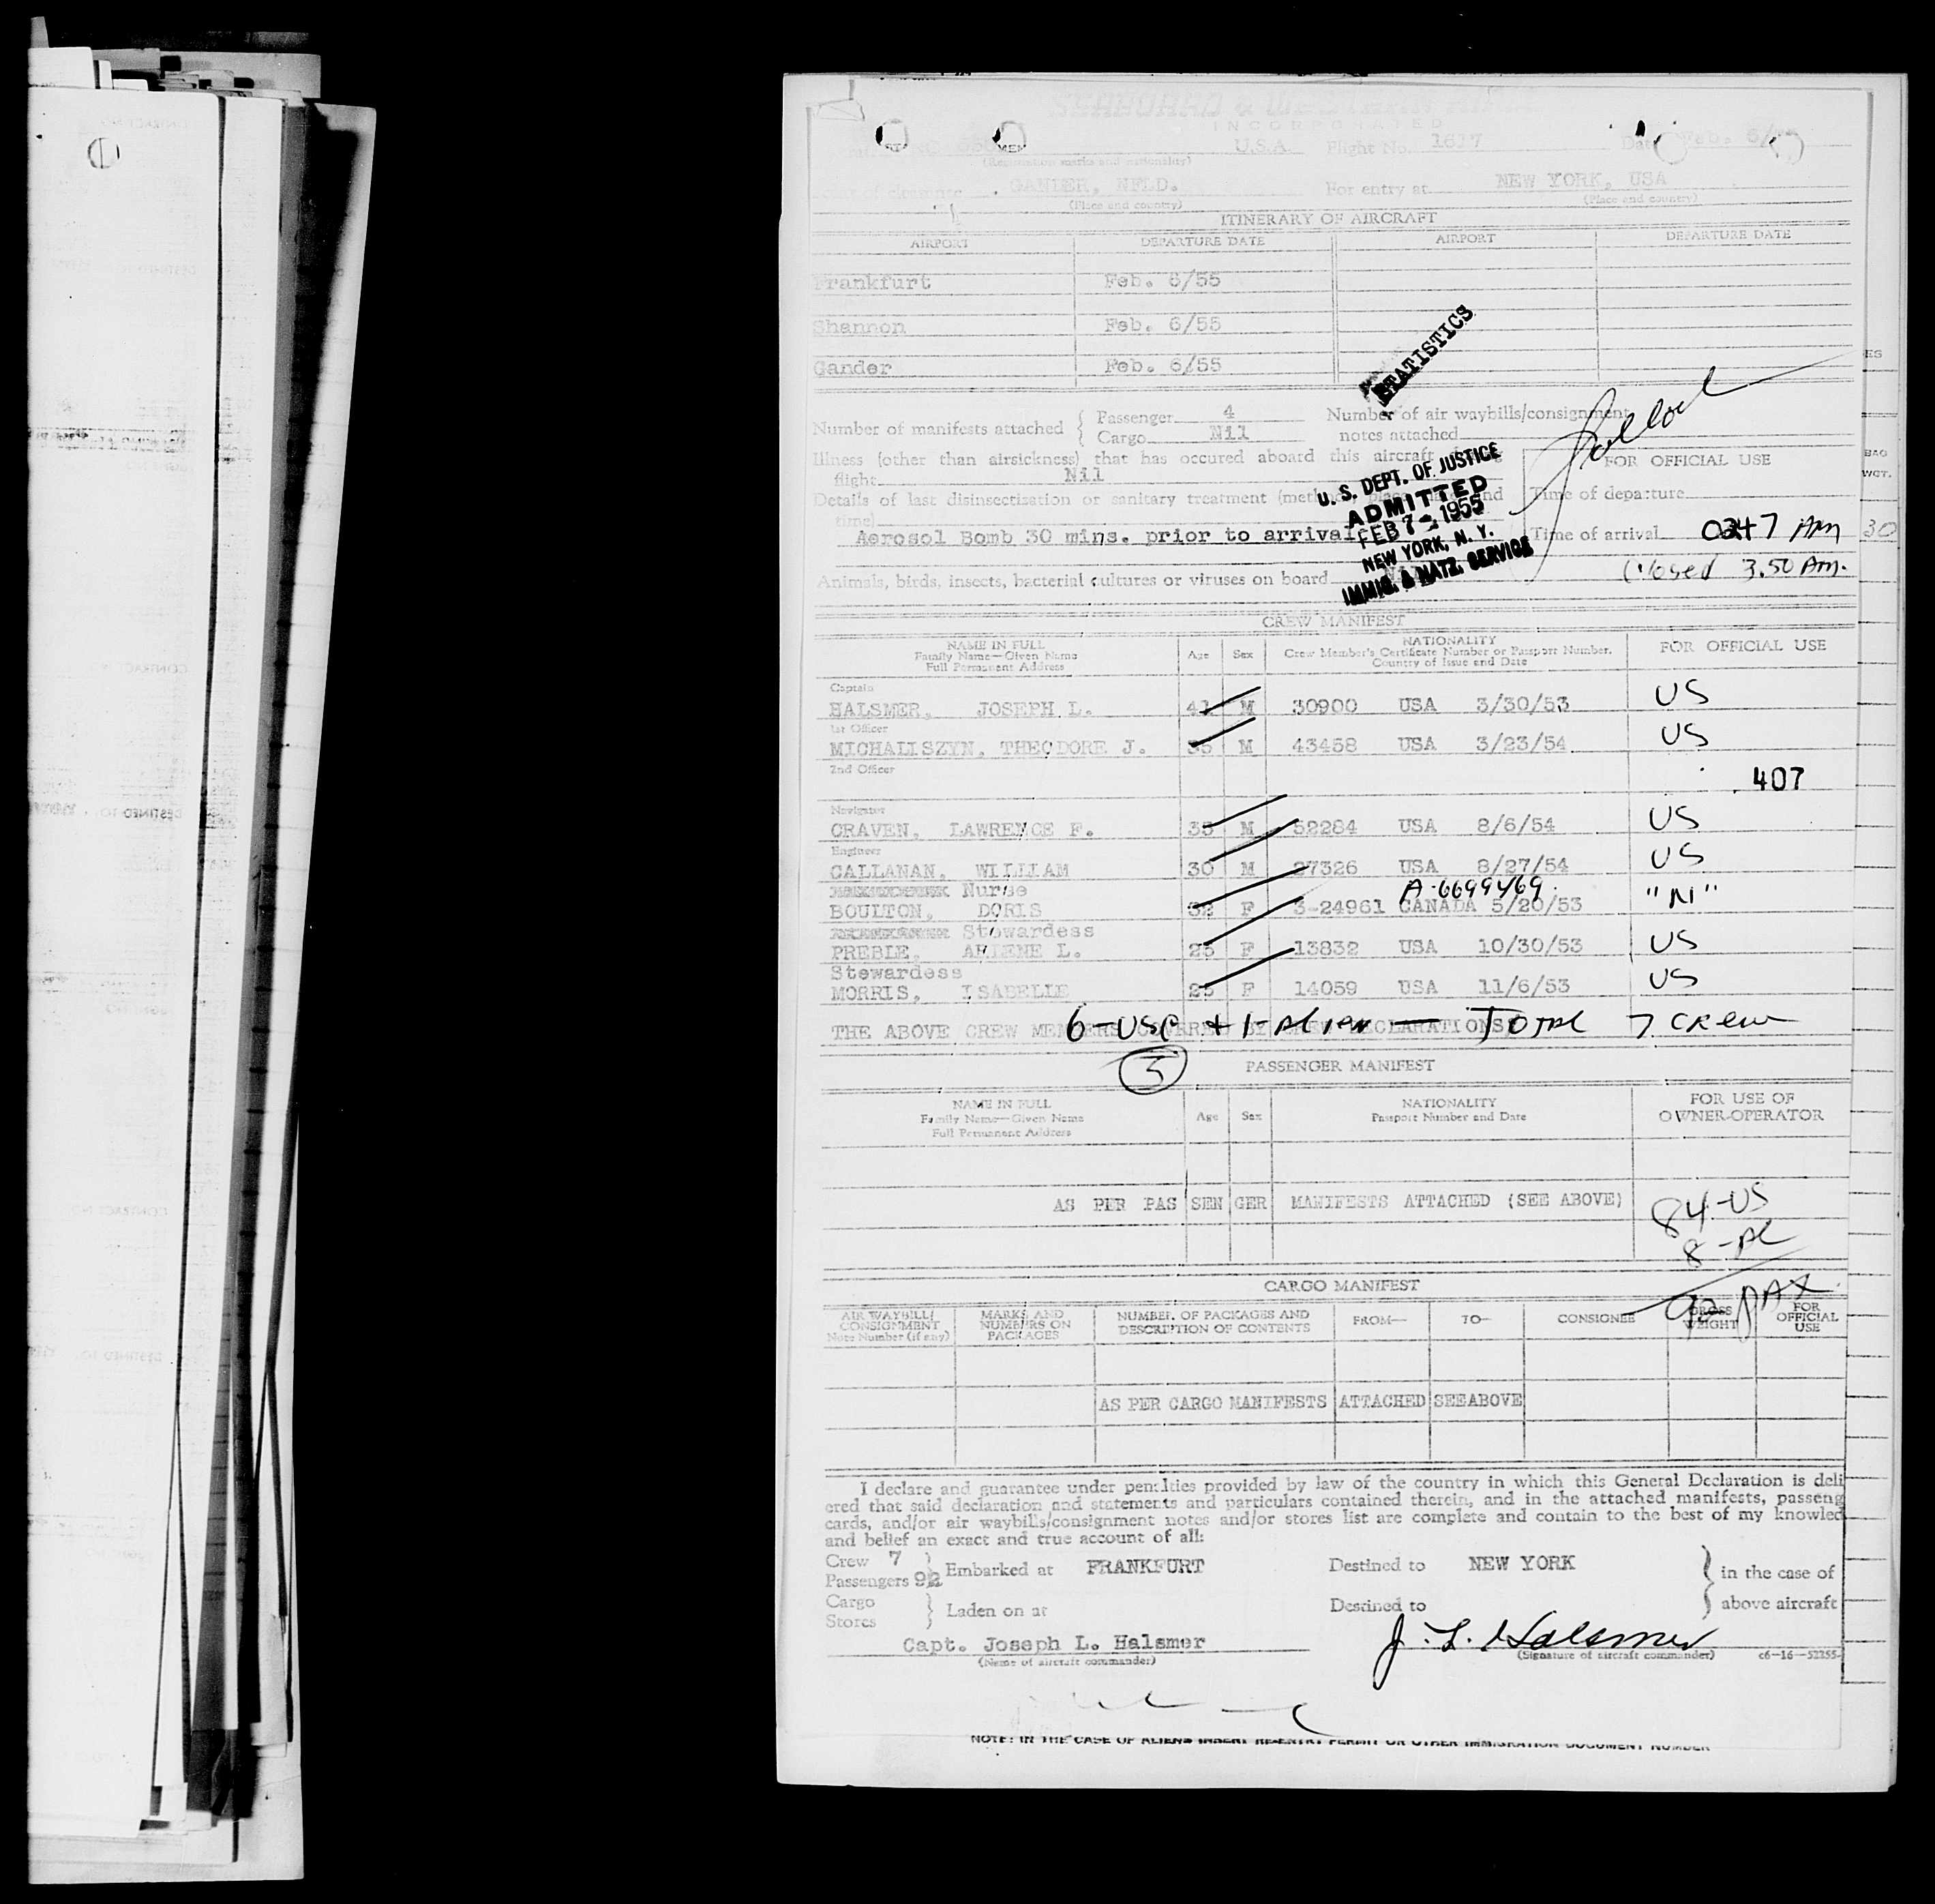 SEABOARD & WESTERN
INCORPORATED
U.S.A. Flight No. 1617 Feb. 6/
(Registration marks and nationality)
GANDER, NFLD. For entry at NEW YORK, USA
(Place and country) (Place and country)
ITINERARY OF AIRCRAFT
AIRPORT DEPARTURE DATE AIRPORT DEPARTURE DATE
Frankfurt Feb. 6/55
Shannon Feb. 6/55
Gander Feb. 6/55
STATISTICS
Number of manifests attached { Passenger 4 Number of air waybills/consignment
Cargo Nil notes attached
Illness (other than airsickness) that has occured aboard this aircraft
flight Nil
FOR OFFICIAL USE
Details of last disinsectization or sanitary treatment
time)
Time of departure
Aerosol Bomb 30 mins. prior to arrival
Time of arrival 0347 Am 30
Closed 3.50 Am.
Animals, birds, insects, bacterial cultures or viruses on board
U. S. DEPT. OF JUSTICE
ADMITTED
FEB 7 - 1955
NEW YORK, N. Y.
IMMIG. & NATZ. SERVICE
BAG
WGT.
CREW MANIFEST
NAME IN FULL
Family Name—Given Name
Full Permanent Address
Age Sex
NATIONALITY
Crew Member's Certificate Number or Passport Number.
Country of Issue and Date
FOR OFFICIAL USE
Captain
HALSMER, JOSEPH L. 41 M 30900 USA 3/30/53 US
1st Officer
MICHALISZYN, THEODORE J. 35 M 43458 USA 3/23/54 US
2nd Officer
407
Navigator
CRAVEN, LAWRENCE F. 33 M 52284 USA 8/6/54 US
Engineer
CALLANAN, WILLIAM 30 M 27326 USA 8/27/54 US
Nurse A-6699469
BOULTON, DORIS 32 F 3-24961 CANADA 5/20/53 "N1"
Stewardess
PREBLE, ARLENE L. 23 F 13832 USA 10/30/53 US
Stewardess
MORRIS, ISABELLE 25 F 14059 USA 11/6/53 US
THE ABOVE CREW MEMBERS COVERED BY CREW DECLARATIONS
6-USC + 1-Alien — Total 7 Crew
5
PASSENGER MANIFEST
NAME IN FULL
Family Name—Given Name
Full Permanent Address
Age Sex
NATIONALITY
Passport Number and Date
FOR USE OF
OWNER-OPERATOR
AS PER PAS SEN GER MANIFESTS ATTACHED (SEE ABOVE)
84-US
8-Al
92 PAX
CARGO MANIFEST
AIR WAYBILL/
CONSIGNMENT
Note Number (if any)
MARKS AND
NUMBERS ON
PACKAGES
NUMBER OF PACKAGES AND
DESCRIPTION OF CONTENTS
FROM— TO— CONSIGNEE
GROSS
WEIGHT
FOR
OFFICIAL
USE
AS PER CARGO MANIFESTS ATTACHED SEE ABOVE
I declare and guarantee under penalties provided by law of the country in which this General Declaration is deli
ered that said declaration and statements and particulars contained therein, and in the attached manifests, passeng
cards, and/or air waybills/consignment notes and/or stores list are complete and contain to the best of my knowled
and belief an exact and true account of all:
Crew 7
Passengers 92 } Embarked at FRANKFURT Destined to NEW YORK } in the case of
Cargo
Stores } Laden on at Destined to above aircraft
Capt. Joseph L. Halsmer J. L. Halsmer
(Name of aircraft commander) (Signature of aircraft commander) c6—16—52255-
NOTE: IN THE CASE OF ALIENS INSERT RE-ENTRY PERMIT OR OTHER IMMIGRATION DOCUMENT NUMBER